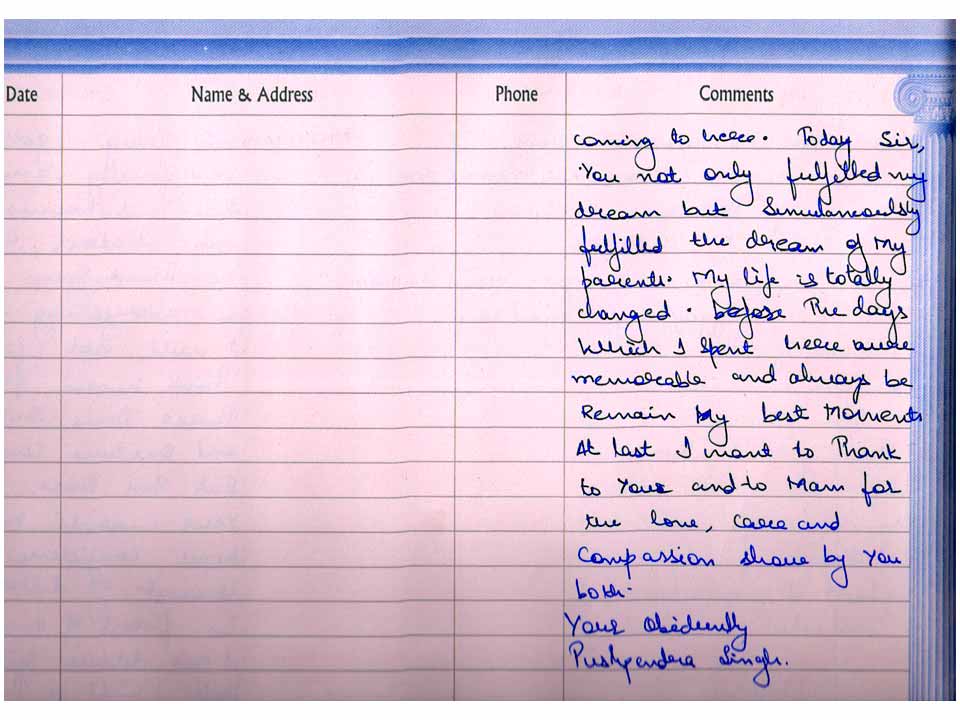 Date Name & Address Phone Comments
coming to here. Today Sir,
You not only fulfilled my
dream but Simulaneoulsly
fulfilled the dream of My
parents. My life is totally
changed. before The days
Which I spent here were
memorable and always be
Remain My best Moments
At last I want to Thank
to Your and to Mam for
the love, care and
Compassion shave by You
both.
Your Obediently
Pushpendera Singh.